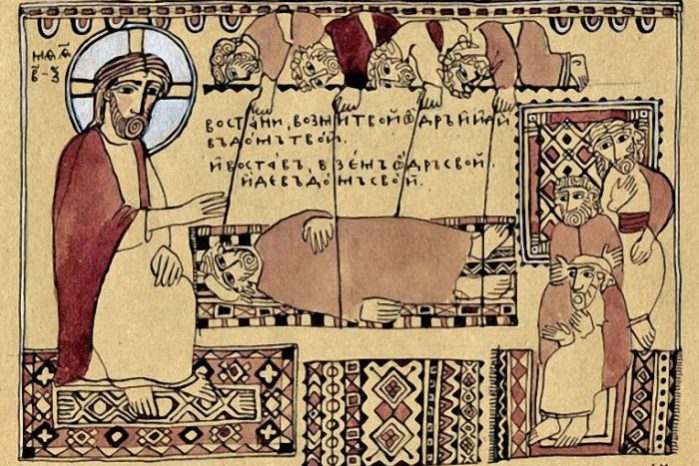 востани, возми твой ѻдръ и иди
въ домъ твой.
и воставъ, взе́мъ ѻдръ свой,
иде въ домъ свой.